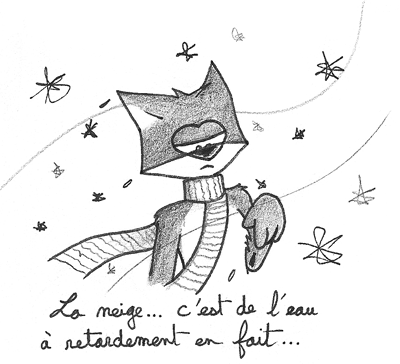 La neige... c'est de l'eau
à retardement en fait...